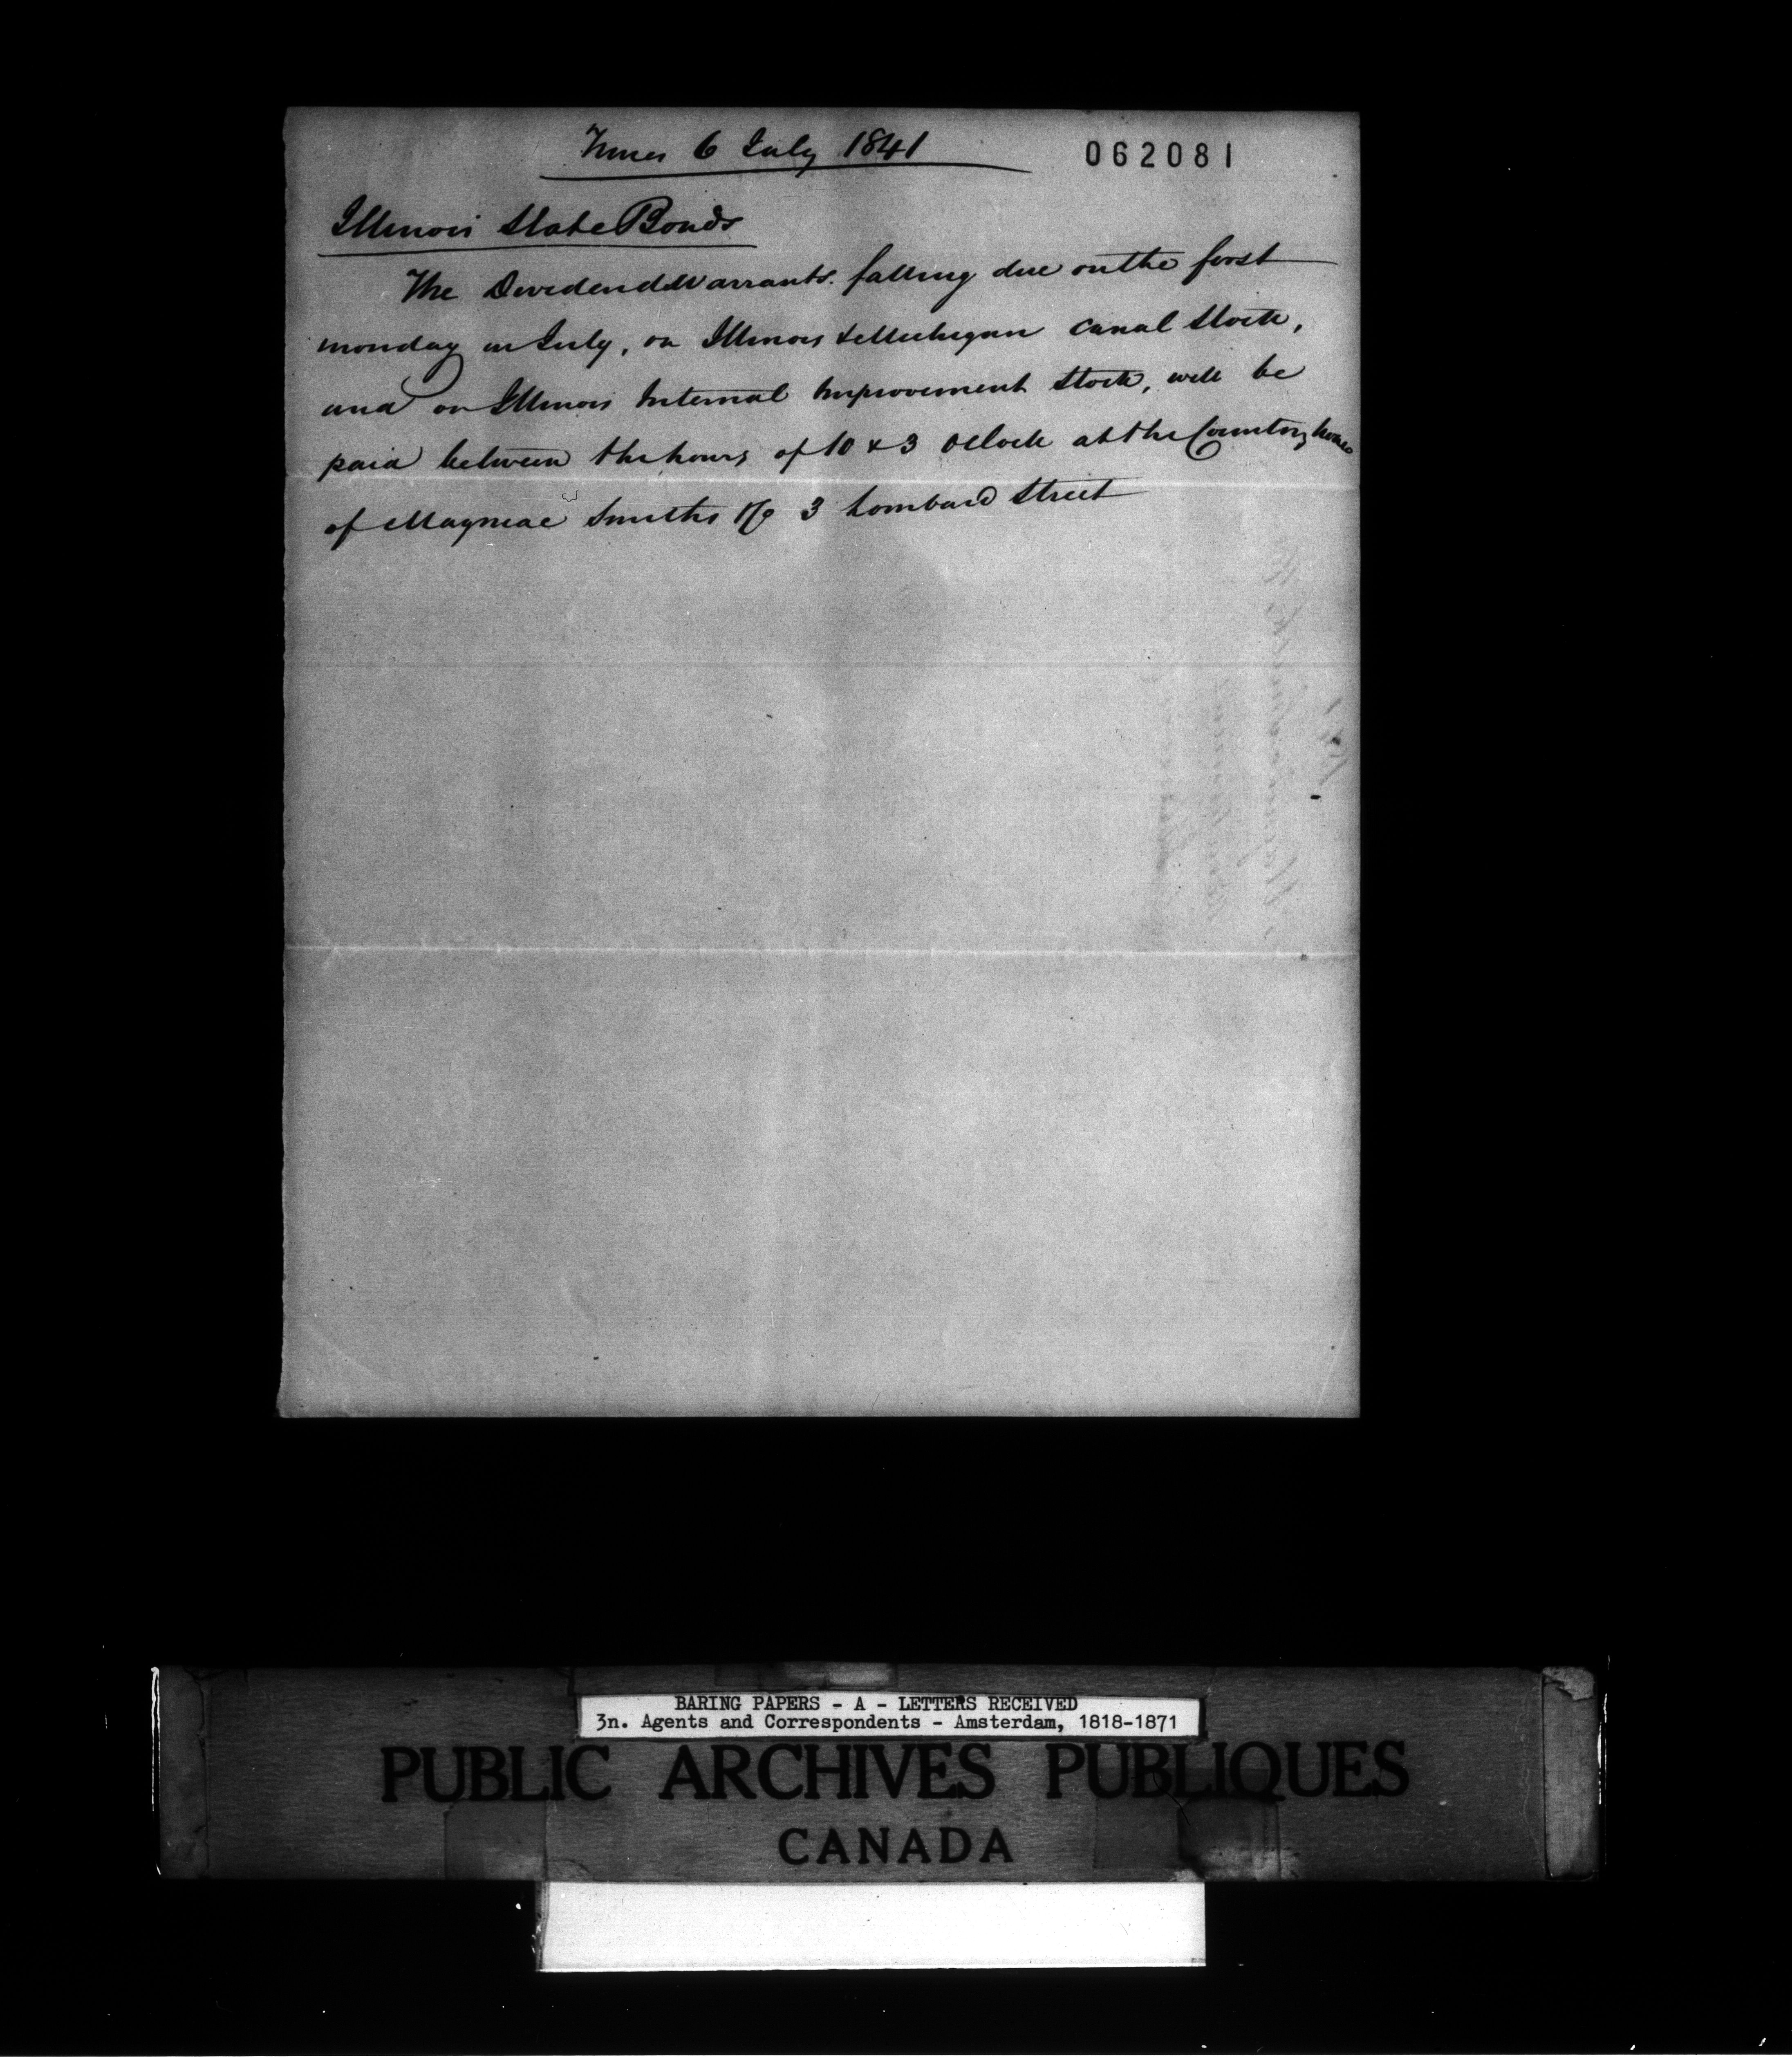 Times 6 July 1841
062081
Illinois State Bonds
The Dividend Warrants falling due on the first
monday in July, on Illinois & Michigan Canal Stock,
and on Illinois Internal Improvement Stock, will be
paid between the hours of 10 & 3 oClock at the Counting house
of Magniac Smiths & Co 3 Lombard Street
BARING PAPERS - A - LETTERS RECEIVED
3n. Agents and Correspondents - Amsterdam, 1818-1871
PUBLIC ARCHIVES PUBLIQUES
CANADA